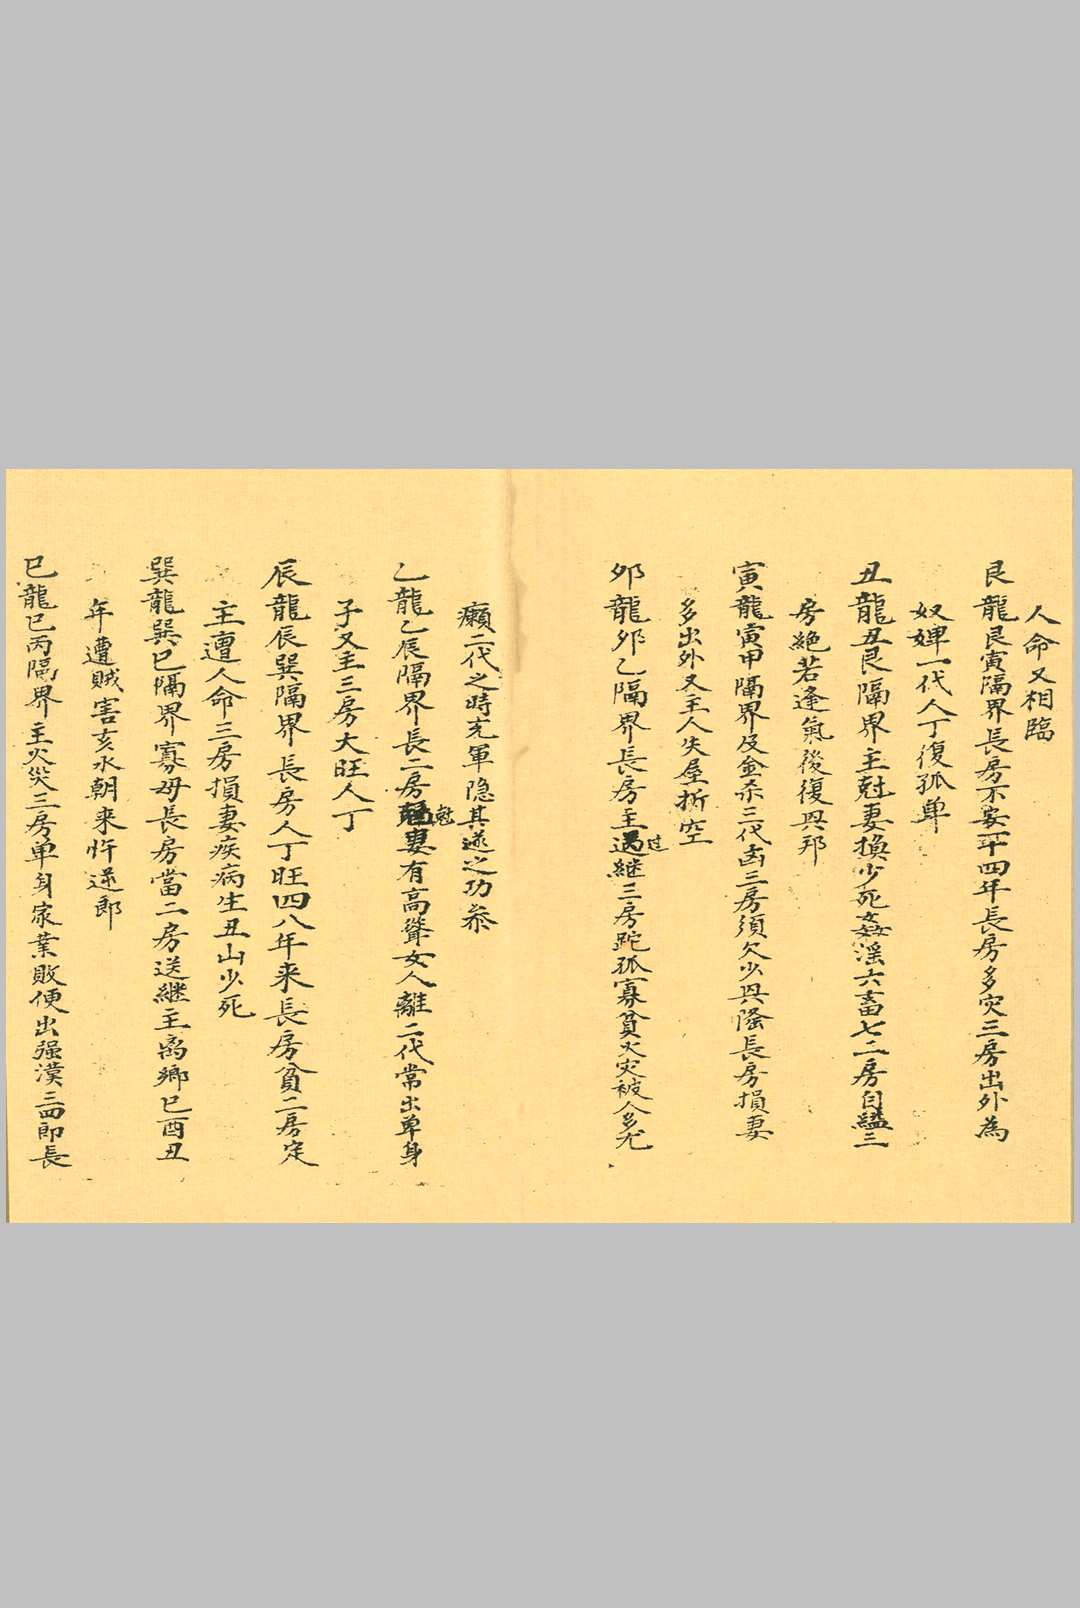 人命又相臨
艮龍艮寅隔界長房不安一年四年長房多灾三房出外為
奴婢一代人丁復孤单
丑龍丑艮隔界主尅妻換少死姦滛六畜七二房自縊三
房絕若逢氣後復興邦
寅龍寅甲隔界及金杀三代凾三房須欠少興隆長房損妻
多出外又主人失屋拆空
夘龍夘乙隔界長房主過过継三房跎孤寡貧火灾被人多尤
癩二代之時充軍隐其遂之功叅
乙龍乙辰隔界長二房尅妻有高聳女人離二代常出单身
子又主三房大旺人丁
辰龍辰巽隔界長房人丁旺四八年来長房貧二房定
主遭人命三房損妻疾病生丑山少死
巽龍巽巳隔界寡母長房當二房送継主离鄉巳酉丑
年遭賊害亥水朝来忤逆郎
巳龍巳丙隔界主火災三房单身家業敗便出强漢三四郎長